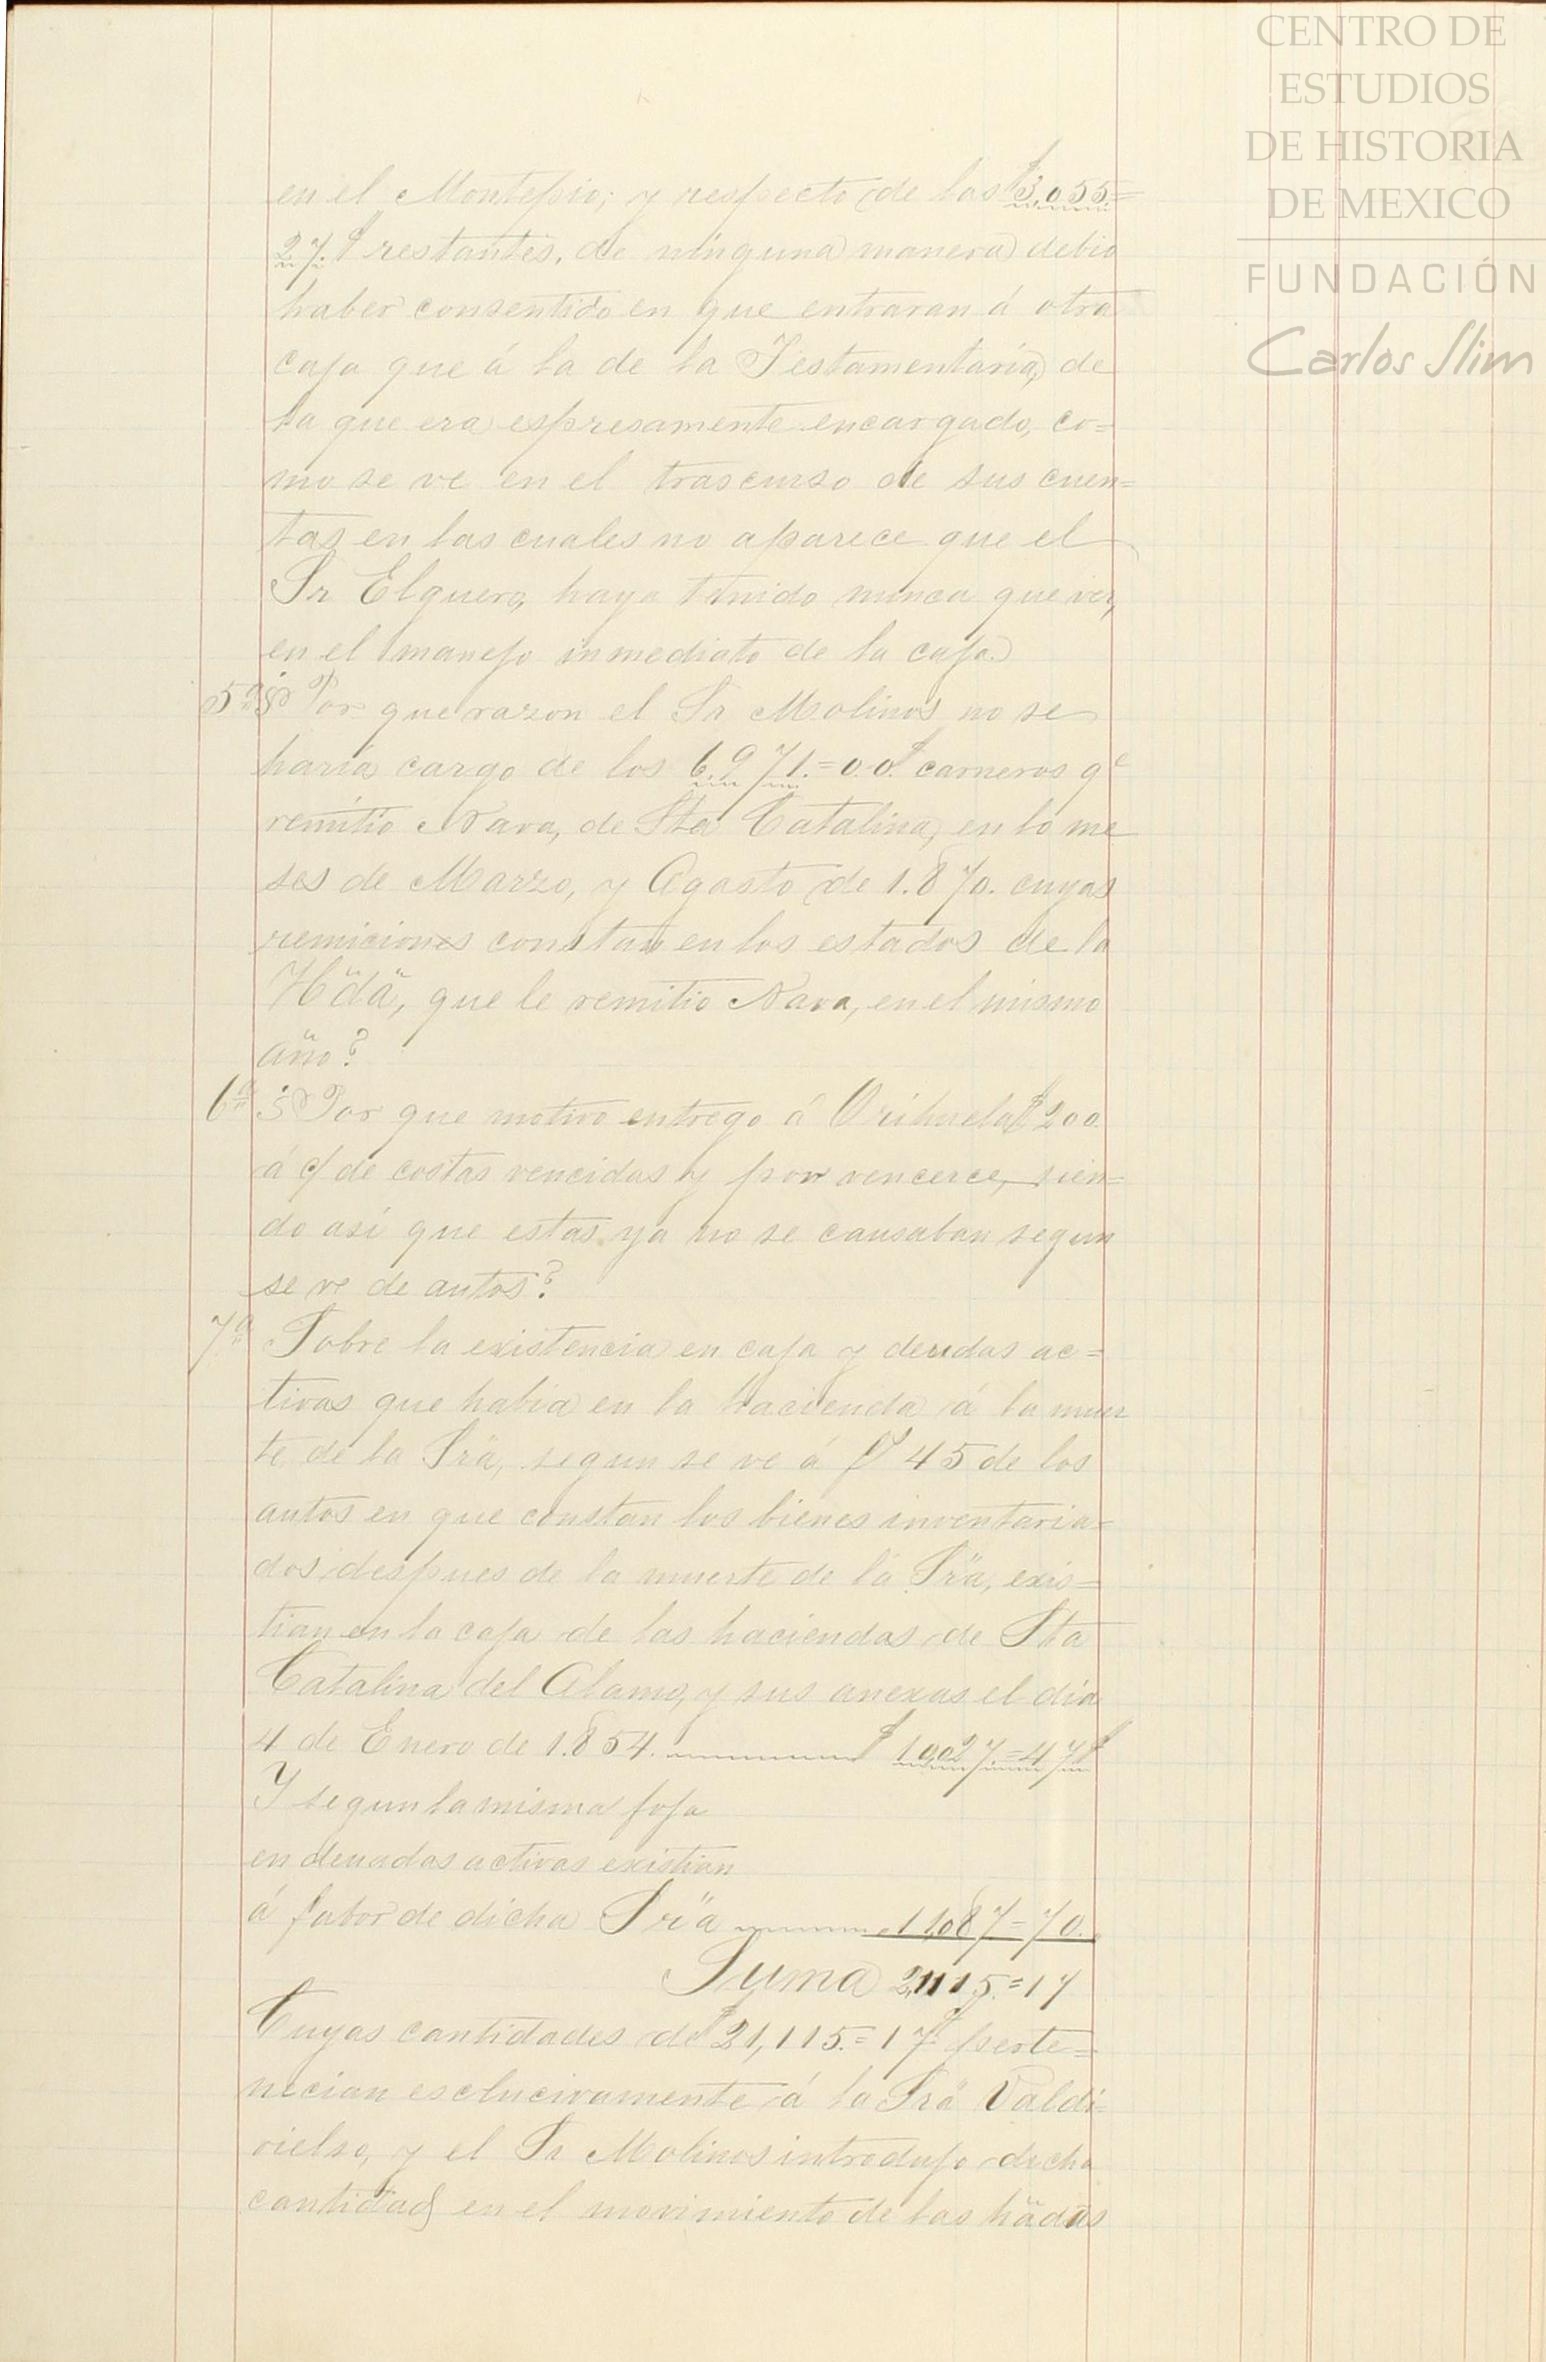 CENTRO DE
ESTUDIOS
DE HISTORIA
DE MEXICO
FUNDACIÓN
Carlos Slim
en el Montepio; y respecto de los $3,055=
27.$ restantes, de ninguna manera debio
haber consentido en que entraran á otra
caja que á la de la Testamentaria, de
la que era espresamente encargado, co=
mo se ve en el trascurso de sus cuen=
tas en las cuales no aparece que el
Sr Elguero, haya tenido nunca que ver,
en el manejo inmediato de la caja.
5ª ¿Por que razon el Sr Molinos no se
haria cargo de los 6,971.=00.$ carneros qe
remitio Nava, de Sta Catalina, en lo me
ses de Marzo, y Agosto de 1.870. cuyas
remiciones constan en los estados de la
Hda, que le remitio Nava, en el mismo
año?
6ª ¿Por que motivo entrego á Orihuela $200
á c/ de costas vencidas y por vencerce, sien=
do asi que estas ya no se causaban segun
se ve de autos?
7ª Sobre la existencia en caja y deudas ac=
tivas que habia en la hacienda á la muer
te de la Sra, segun se ve á f 45 de los
autos en que constan los bienes inventaria=
dos despues de la muerte de la Sra, exis=
tian en la caja de las haciendas de Sta
Catalina del Alamo, y sus anexas el dia
4 de Enero de 1.854. $ 10,027.=47$
Y segun la misma foja
en deuadas activas existian
á fabor de dicha Sra 11,087=70.
Suma 21,115.=17
Cuyas cantidades de $21,115.=17$ perte=
necian esclucivamente á la Sra Valdi=
vielso, y el Sr Molinos introdujo dicha
cantidad en el movimiento de las hadas